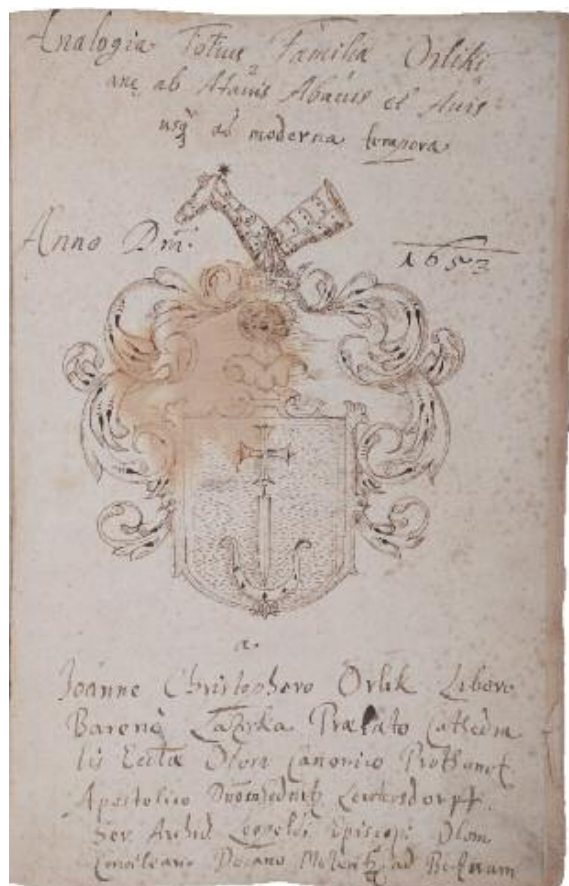 Analogia Totius Familiæ Orliki
anæ ab Atavis Abavis et Avis
usq̨ ad moderna tempora
Anno Dm̄i. 1653
a.
Joanne Christophero Orlik Libero
Barone Laziska Prælato Cathedra
lis Eccłæ Olom Canonico
Apostolico
Ser. Archid. Leopoldi Episcopi Olom
Consiliario Decano ad